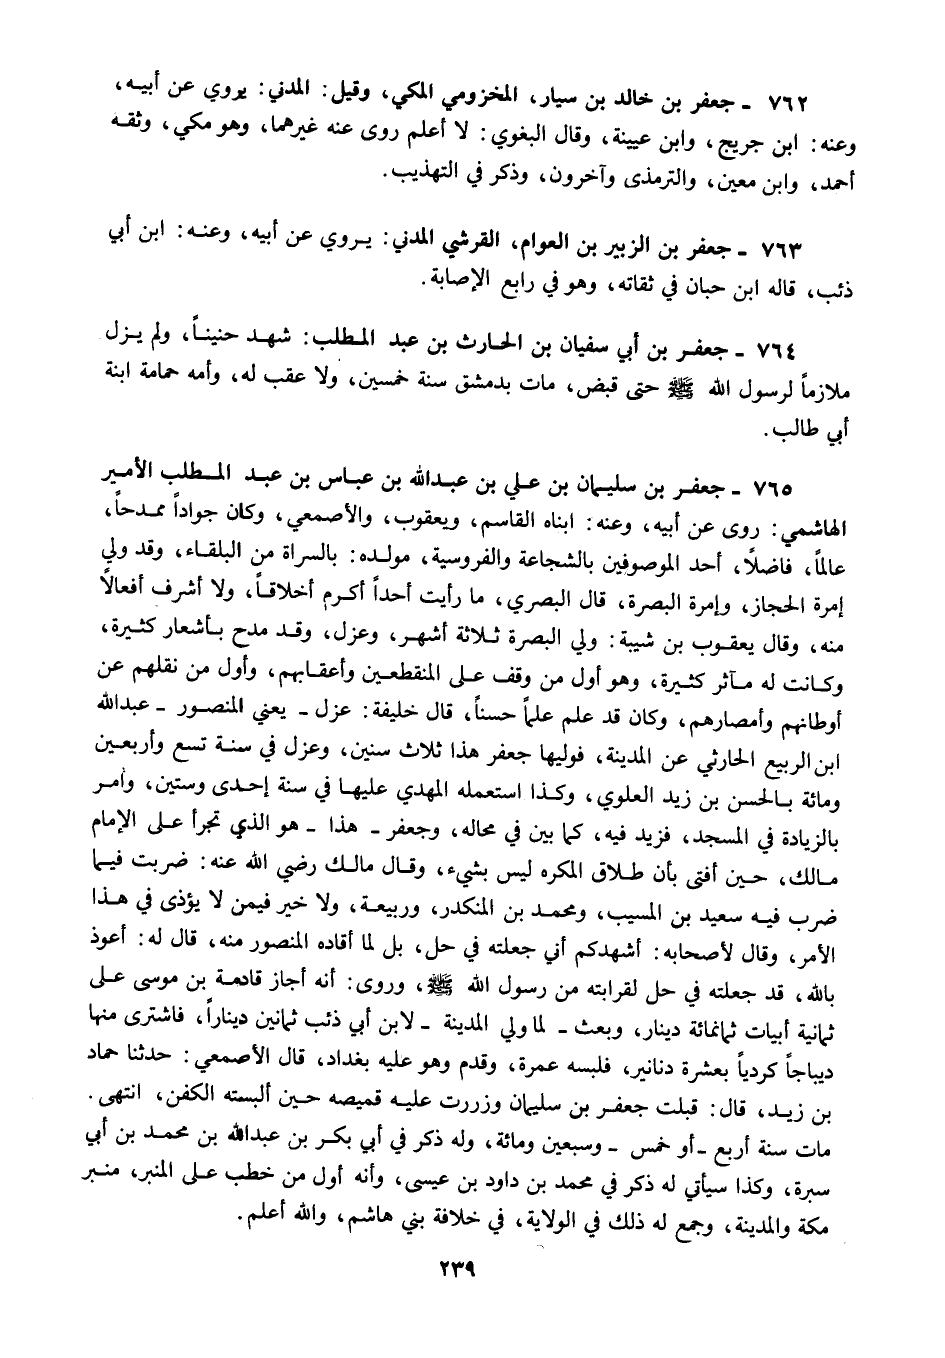 ٧٦٢ ـ جعفر بن خالد بن سيار، المخزومي المكي، وقيل: المدني: يروي عن أبيـه،
وعنه: ابن جريج، وابن عيينة، وقال البغوي: لا أعلم روى عنه غيرهما، وهو مكي، وثقـه
أحمد، وابن معين، والترمذى وآخرون، وذكر في التهذيب.
٧٦٣ ـ جعفر بن الزبير بن العوام، القرشي المدني: يـروي عن أبيه، وعنـه: ابن أبي
ذئب، قاله ابن حبان في ثقاته، وهو في رابع الإصابة.
٧٦٤ ـ جعفـر بن أبي سفيان بن الحـارث بن عبد المـطلب: شهـد حنينـاً، ولم يـزل
ملازماً لرسول الله ﷺ حتى قبض، مات بدمشق سنة خمسين، ولا عقب له، وأمه حمامة ابنة
أبي طالب.
٧٦٥ ـ جعفـر بن سليمان بن عـلي بن عبـدالله بن عبـاس بن عبـد المـطلب الأمـير
الهاشمي: روى عن أبيه، وعنه: ابناه القاسم، ويعقوب، والأصمعي، وكان جواداً ممـدحاً،
عالماً، فاضلاً، أحد الموصوفين بالشجاعة والفروسية، مولـده: بالسراة من البلقـاء، وقد ولي
إمرة الحجاز، وإمرة البصرة، قال البصري، ما رأيت أحداً أكـرم أخلاقـاً، ولا أشرف أفعالاً
منه، وقال يعقـوب بن شيبة: ولي البصرة ثـلاثة أشهـر، وعزل، وقـد مدح بـأشعار كثـيرة،
وكـانت له مـآثر كثـيرة، وهو أول من وقف عـلى المنقطعـين وأعقـابهم، وأول من نقلهم عن
أوطانهم وأمصارهم، وكان قد علم علماً حسناً، قال خليفة: عزل ـ يعني المنصـور ـ عبدالله
ابن الربيع الحارثي عن المدينة، فوليها جعفر هذا ثلاث سنين، وعزل في سنـة تسع وأربعـين
ومائة بـالحسن بن زيد العلوي، وكـذا استعمله المهدي عليهـا في سنة إحـدى وستين، وأمـر
بالزيادة في المسجد، فزيد فيه، كما بين في محاله، وجعفر ـ هذا ـ هو الذي تجرأ عـلى الإمام
مـالك، حـين أفتى بأن طـلاق المكره ليس بشيء، وقـال مالـك رضي الله عنه: ضربت فيـما
ضرب فيـه سعيد بن المسيب، ومحمـد بن المنكدر، وربيعـة، ولا خير فيمن لا يؤذى في هـذا
الأمر، وقال لأصحابه: أشهدكم أني جعلته في حل، بل لما أقاده المنصور منه، قال له: أعوذ
بالله، قـد جعلته في حل لقرابته من رسـول الله ﷺ، وروى: أنه أجاز قادمـة بن موسى عـلى
ثمانية أبيات ثمانمائة دينار، وبعث ـ لما ولي المدينة ـ لابن أبي ذئب ثمانين ديناراً، فاشترى منها
ديباجاً كردياً بعشرة دنانير، فلبسه عمرة، وقدم وهو عليه بغداد، قال الأصمعي: حدثنا حماد
بن زيـد، قال: قبلت جعفـر بن سليمان وزررت عليـه قميصه حـين ألبسته الكفن، انتهى.
مات سنة أربع ـ أو خمس ـ وسبعين ومائة، وله ذكر في أبي بكـر بن عبدالله بن محمـد بن أبي
سبرة، وكذا سيأتي له ذكر في محمد بن داود بن عيسى، وأنه أول من خطب عـلى المنبر، منـبر
مكة والمدينة، وجمع له ذلك في الولاية، في خلافة بني هاشم، والله أعلم.
٢٣٩